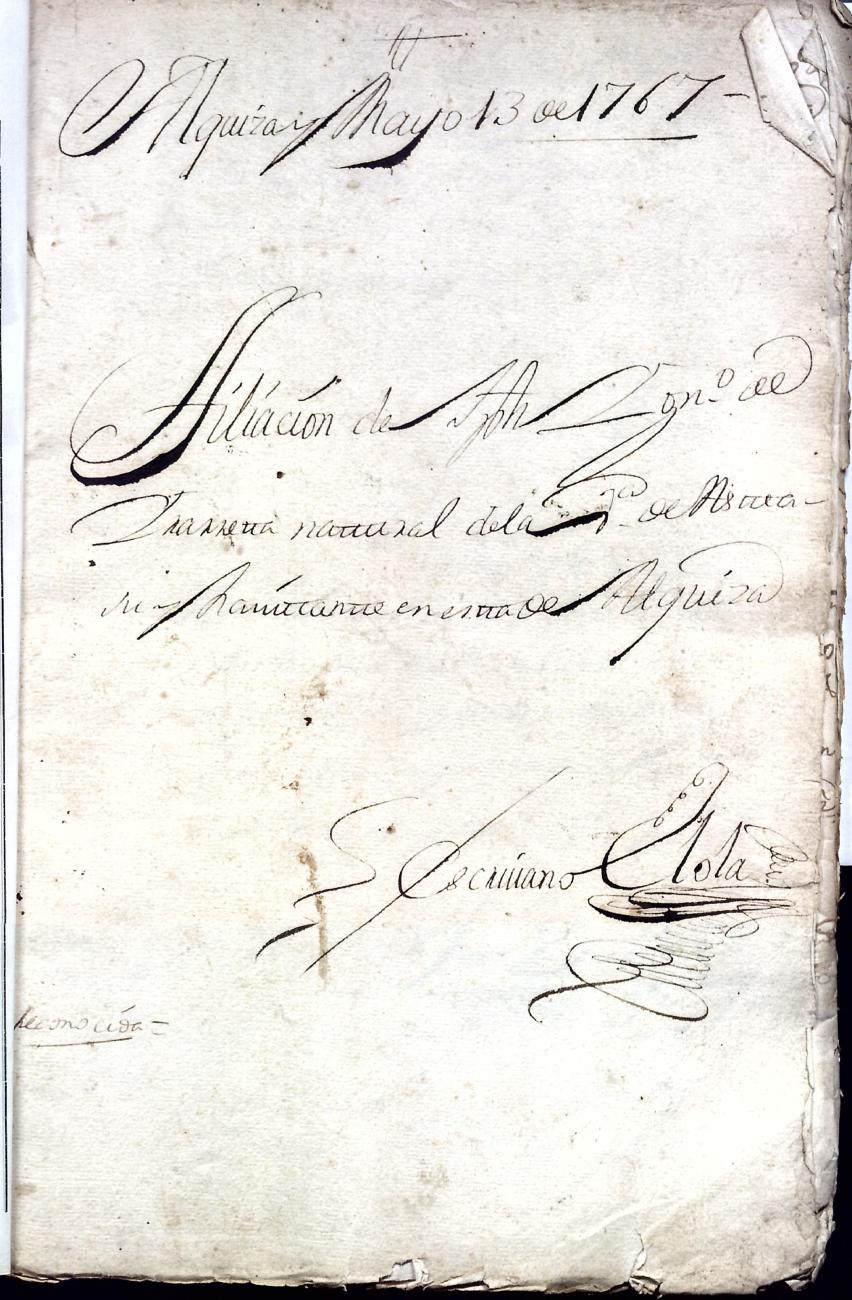 Alquiza y Mayo 13 de 1767 -
Filiación de Jph Dgn.º de
Yrarreta natural de la V.ª de Astea-
su y havitante en esta de Alquiza
Escrivano Elola
Reconocida =